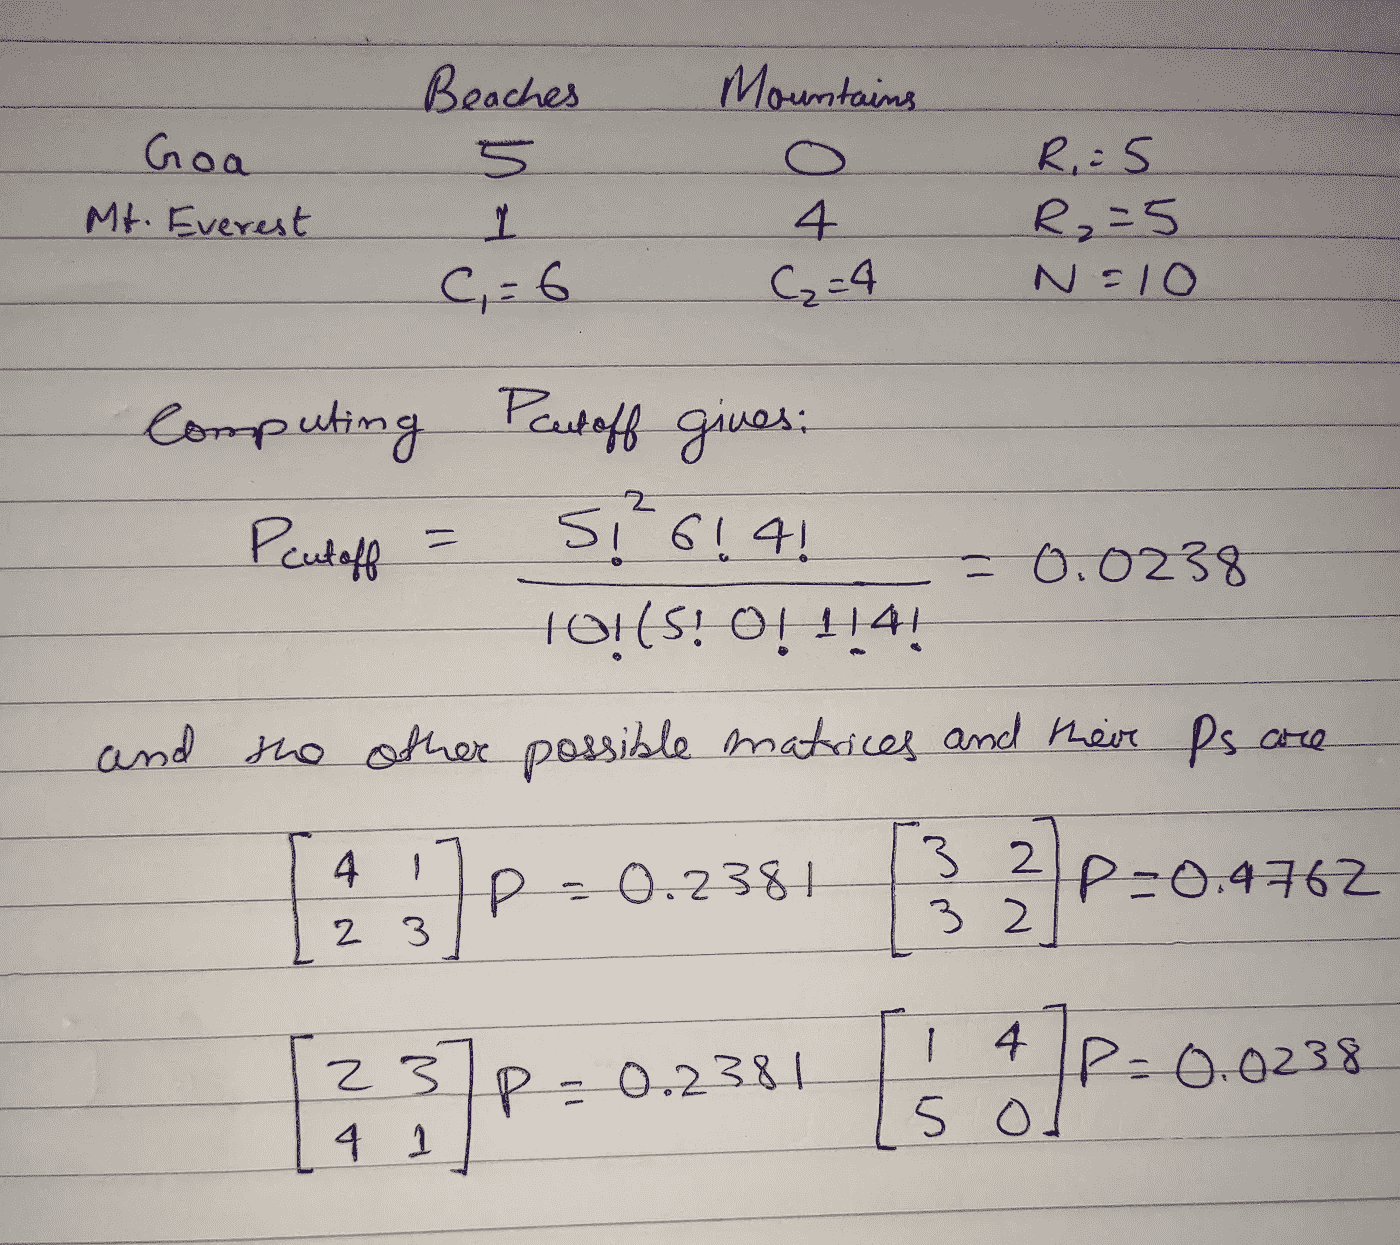 Beaches Mountains
Goa 5 0 R₁=5
Mt. Everest 1 4 R₂=5
C₁=6 C₂=4 N=10
Computing Pcutoff gives:
Pcutoff = 5!² 6! 4! / 10!(5! 0! 1!4! = 0.0238
and the other possible matrices and their Ps are
[4 1] P = 0.2381 [3 2] P=0.4762
[2 3] [3 2]
[2 3] P = 0.2381 [1 4] P=0.0238
[4 1] [5 0]